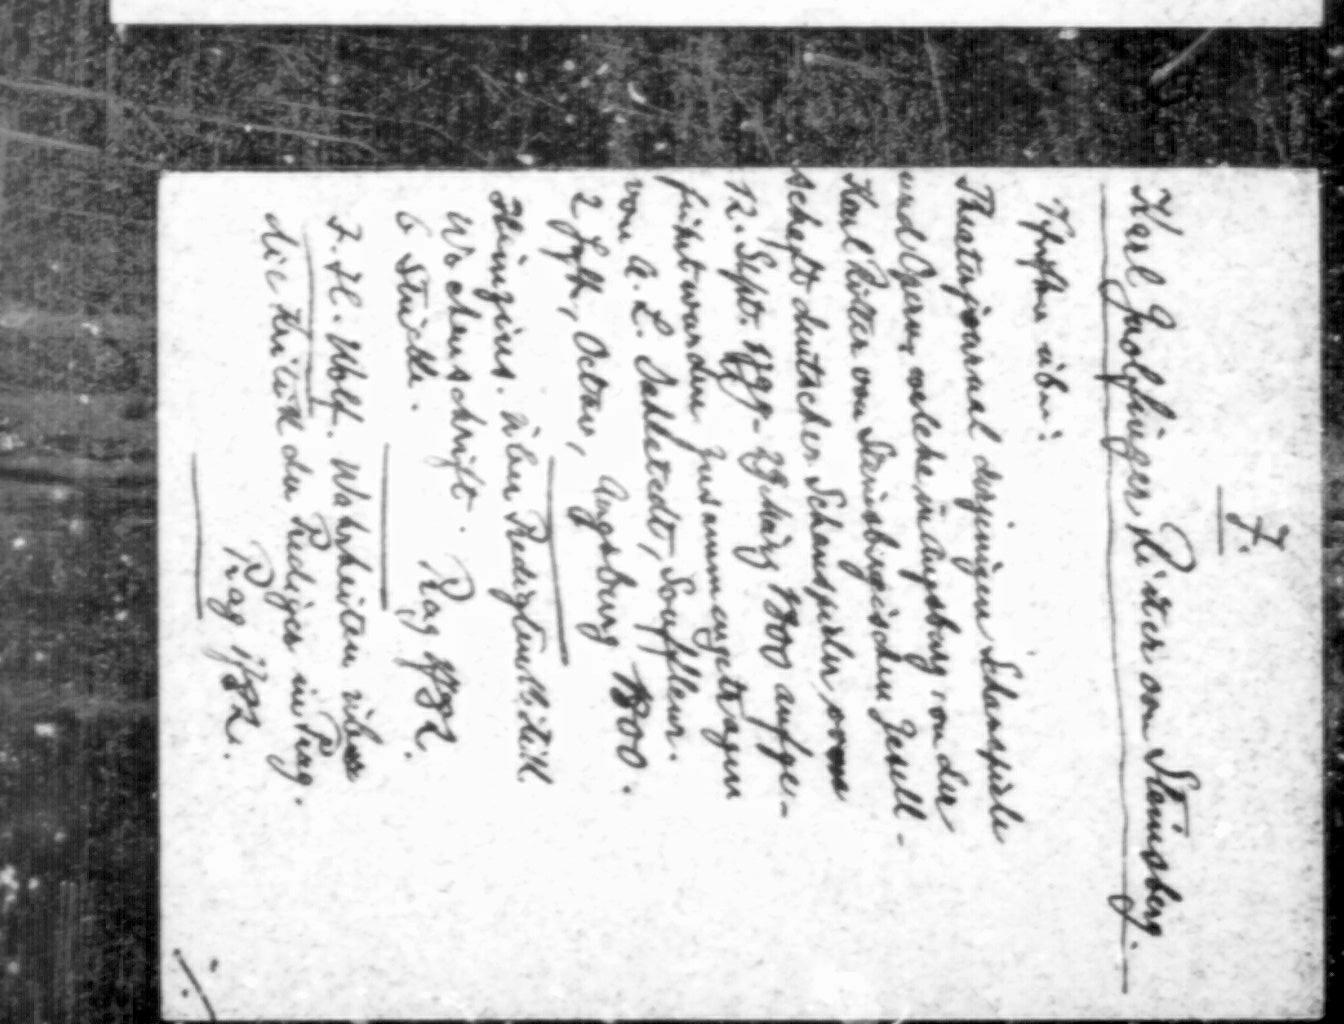 7.
Karl Guolfinger Ritter von Steinsberg.
Schriften über:
Theaterjournal derjenigen Schauspiele
und Opern, welche in Augsburg von der
Karl Ritter von Steinsbergischen Gesell-
schaft deutscher Schauspieler, vom
12. Sept. 1799 - 29 März 1800 aufge-
führt wurden zusammengetragen
von A. L. Sahlstedt, Souffleur.
2 Hfte, Octav, Augsburg 1800.
Heinzius. über Predigtenkritik
Wochenschrift. Prag 1782.
6 Stücke.
F. H. Wolf. Wahrheiten über
die Kritik der Prediger in Prag.
Prag 1782.
./.